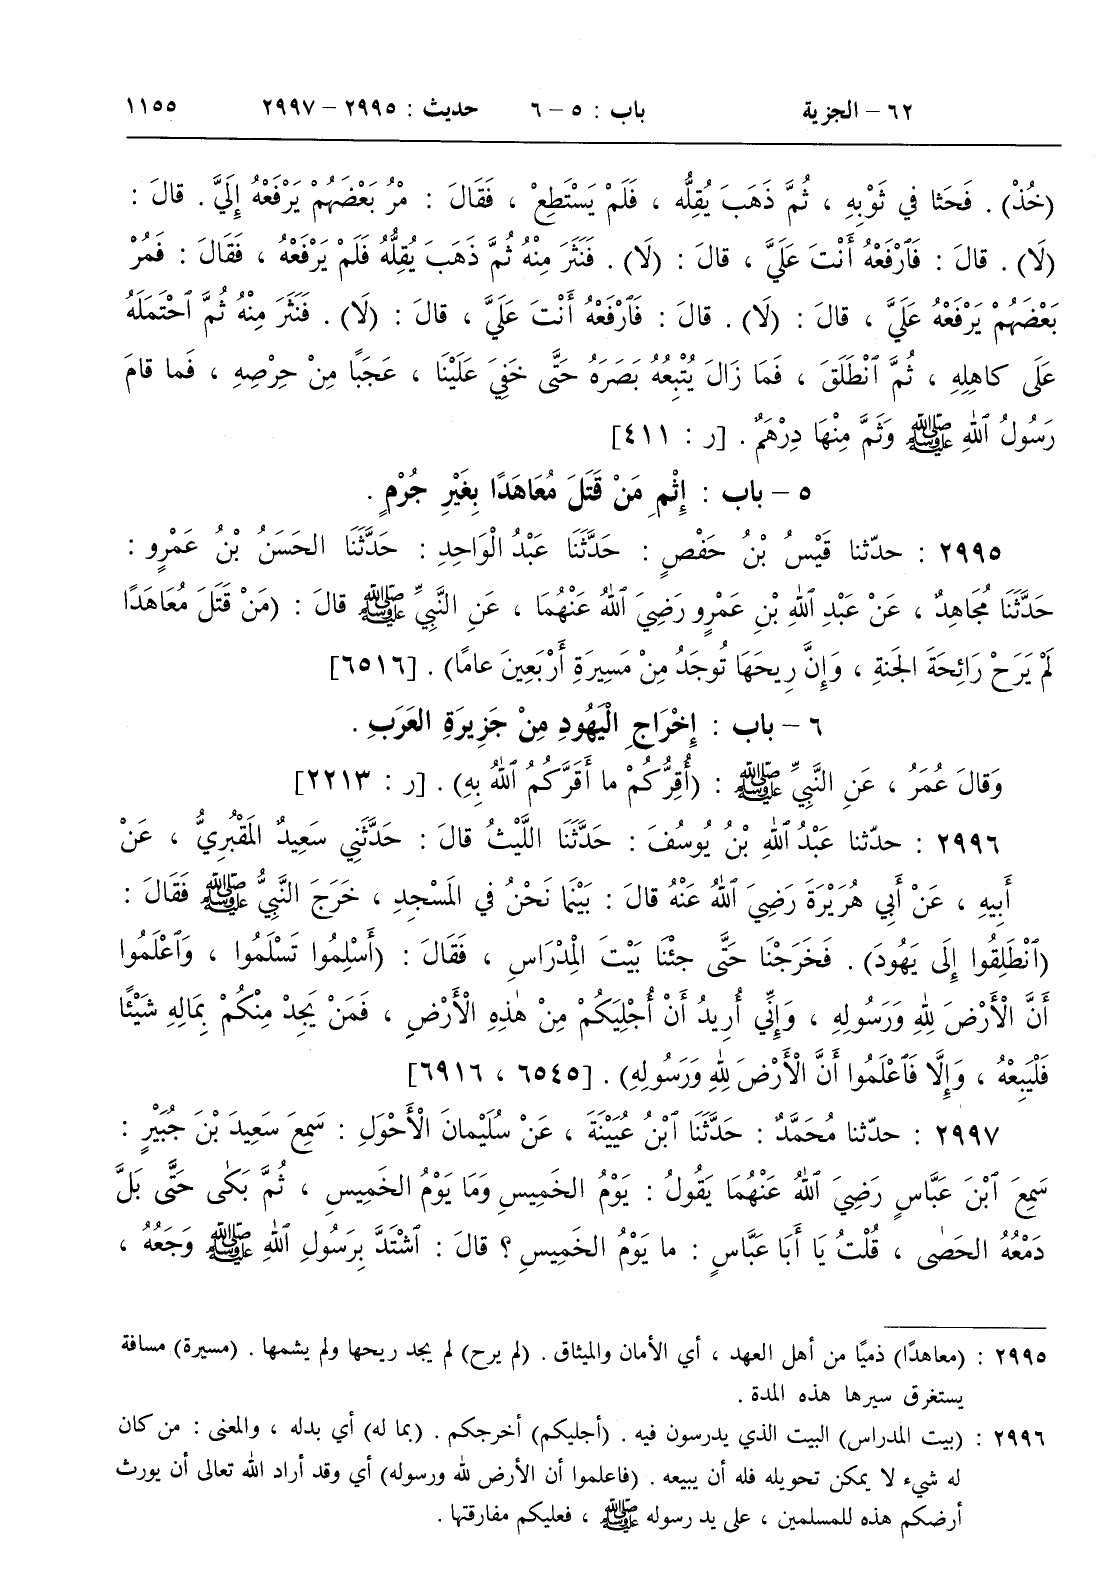 ٦٢ – الجزية باب : ٥ – ٦ حديث : ٢٩٩٥ – ٢٩٩٧ ١١٥٥
(خُذْ) . فَحَثا في ثَوْبِهِ ، ثُمَّ ذَهَبَ يُقِلُّه ، فَلَمْ يَسْتَطِعْ ، فَقَالَ : مُرْ بَعْضَهُمْ يَرْفَعْهُ إِلَيَّ . قالَ :
(لَا) . قالَ : فَٱرْفَعْهُ أَنْتَ عَلَيَّ ، قالَ : (لَا) . فَنَثَرَ مِنْهُ ثُمَّ ذَهَبَ يُقِلُّهُ فَلَمْ يَرْفَعْهُ ، فَقَالَ : فَمُرْ
بَعْضَهُمْ يَرْفَعْهُ عَلَيَّ ، قالَ : (لَا) . قالَ : فَٱرْفَعْهُ أَنْتَ عَلَيَّ ، قالَ : (لَا) . فَنَثَرَ مِنْهُ ثُمَّ ٱحْتَمَلَهُ
عَلَى كاهِلِهِ ، ثُمَّ ٱنْطَلَقَ ، فَمَا زَالَ يُتْبِعُهُ بَصَرَهُ حَتَّى خَفِيَ عَلَيْنَا ، عَجَبًا مِنْ حِرْصِهِ ، فَما قامَ
رَسُولُ ٱللهِ ﷺ وَثَمَّ مِنْهَا دِرْهَمٌ . [ر : ٤١١]
٥ – باب : إِثْمِ مَنْ قَتَلَ مُعَاهَدًا بِغَيْرِ جُرْمٍ .
٢٩٩٥ : حدّثنا قَيْسُ بْنُ حَفْصٍ : حَدَّثَنَا عَبْدُ الْوَاحِدِ : حَدَّثَنَا الحَسَنُ بْنُ عَمْرٍو :
حَدَّثَنَا مُجَاهِدٌ ، عَنْ عَبْدِ ٱللهِ بْنِ عَمْرٍو رَضِيَ ٱللهُ عَنْهُمَا ، عَنِ النَّبِيِّ ﷺ قالَ : (مَنْ قَتَلَ مُعَاهَدًا
لَمْ يَرَحْ رَائِحَةَ الجَنةِ ، وَإِنَّ رِيحَهَا تُوجَدُ مِنْ مَسِيرَةِ أَرْبَعِينَ عامًا) . [٦٥١٦]
٦ – باب : إِخْرَاجِ الْيَهُودِ مِنْ جَزِيرَةِ العَرَبِ .
وَقالَ عُمَرُ ، عَنِ النَّبِيِّ ﷺ : (أُقِرُّكُمْ ما أَقَرَّكُمُ ٱللهُ بِهِ) . [ر : ٢٢١٣]
٢٩٩٦ : حدّثنا عَبْدُ ٱللهِ بْنُ يُوسُفَ : حَدَّثَنَا اللَّيْثُ قالَ : حَدَّثَنِي سَعِيدٌ المَقْبُرِيُّ ، عَنْ
أَبِيهِ ، عَنْ أَبِي هُرَيْرَةَ رَضِيَ ٱللهُ عَنْهُ قالَ : بَيْنَمَا نَحْنُ في المَسْجِدِ ، خَرَجَ النَّبِيُّ ﷺ فَقَالَ :
(ٱنْطَلِقُوا إِلَى يَهُودَ) . فَخَرَجْنَا حَتَّى جِئْنَا بَيْتَ الْمِدْرَاسِ ، فَقَالَ : (أَسْلِمُوا تَسْلَمُوا ، وَٱعْلَمُوا
أَنَّ الْأَرْضَ لِلهِ وَرَسُولِهِ ، وَإِنِّي أُرِيدُ أَنْ أُجْلِيَكُمْ مِنْ هٰذِهِ الْأَرْضِ ، فَمَنْ يَجِدْ مِنْكُمْ بِمَالِهِ شَيْئًا
فَلْيَبِعْهُ ، وَإِلَّا فَٱعْلَمُوا أَنَّ الْأَرْضَ لِلهِ وَرَسُولِهِ) . [٦٥٤٥ ، ٦٩١٦]
٢٩٩٧ : حدّثنا مُحَمَّدٌ : حَدَّثَنَا ٱبْنُ عُيَيْنَةَ ، عَنْ سُلَيْمانَ الْأَحْوَلِ : سَمِعَ سَعِيدَ بْنَ جُبَيْرٍ :
سَمِعَ ٱبْنَ عَبَّاسٍ رَضِيَ ٱللهُ عَنْهُمَا يَقُولُ : يَوْمُ الخَمِيسِ وَما يَوْمُ الخَمِيسِ ، ثُمَّ بَكَى حَتَّى بَلَّ
دَمْعُهُ الحَصٰى ، قُلْتُ يَا أَبَا عَبَّاسٍ : ما يَوْمُ الخَمِيسِ ؟ قالَ : ٱشْتَدَّ بِرَسُولِ ٱللهِ ﷺ وَجَعُهُ ،
٢٩٩٥ : (معاهدًا) ذميًا من أهل العهد ، أي الأمان والميثاق . (لم يرح) لم يجد ريحها ولم يشمها . (مسيرة) مسافة
يستغرق سيرها هذه المدة .
٢٩٩٦ : (بيت المدراس) البيت الذي يدرسون فيه . (أجليكم) أخرجكم . (بما له) أي بدله ، والمعنى : من كان
له شيء لا يمكن تحويله فله أن يبيعه . (فاعلموا أن الأرض لله ورسوله) أي وقد أراد الله تعالى أن يورث
أرضكم هذه للمسلمين ، على يد رسوله ﷺ ، فعليكم مفارقتها .